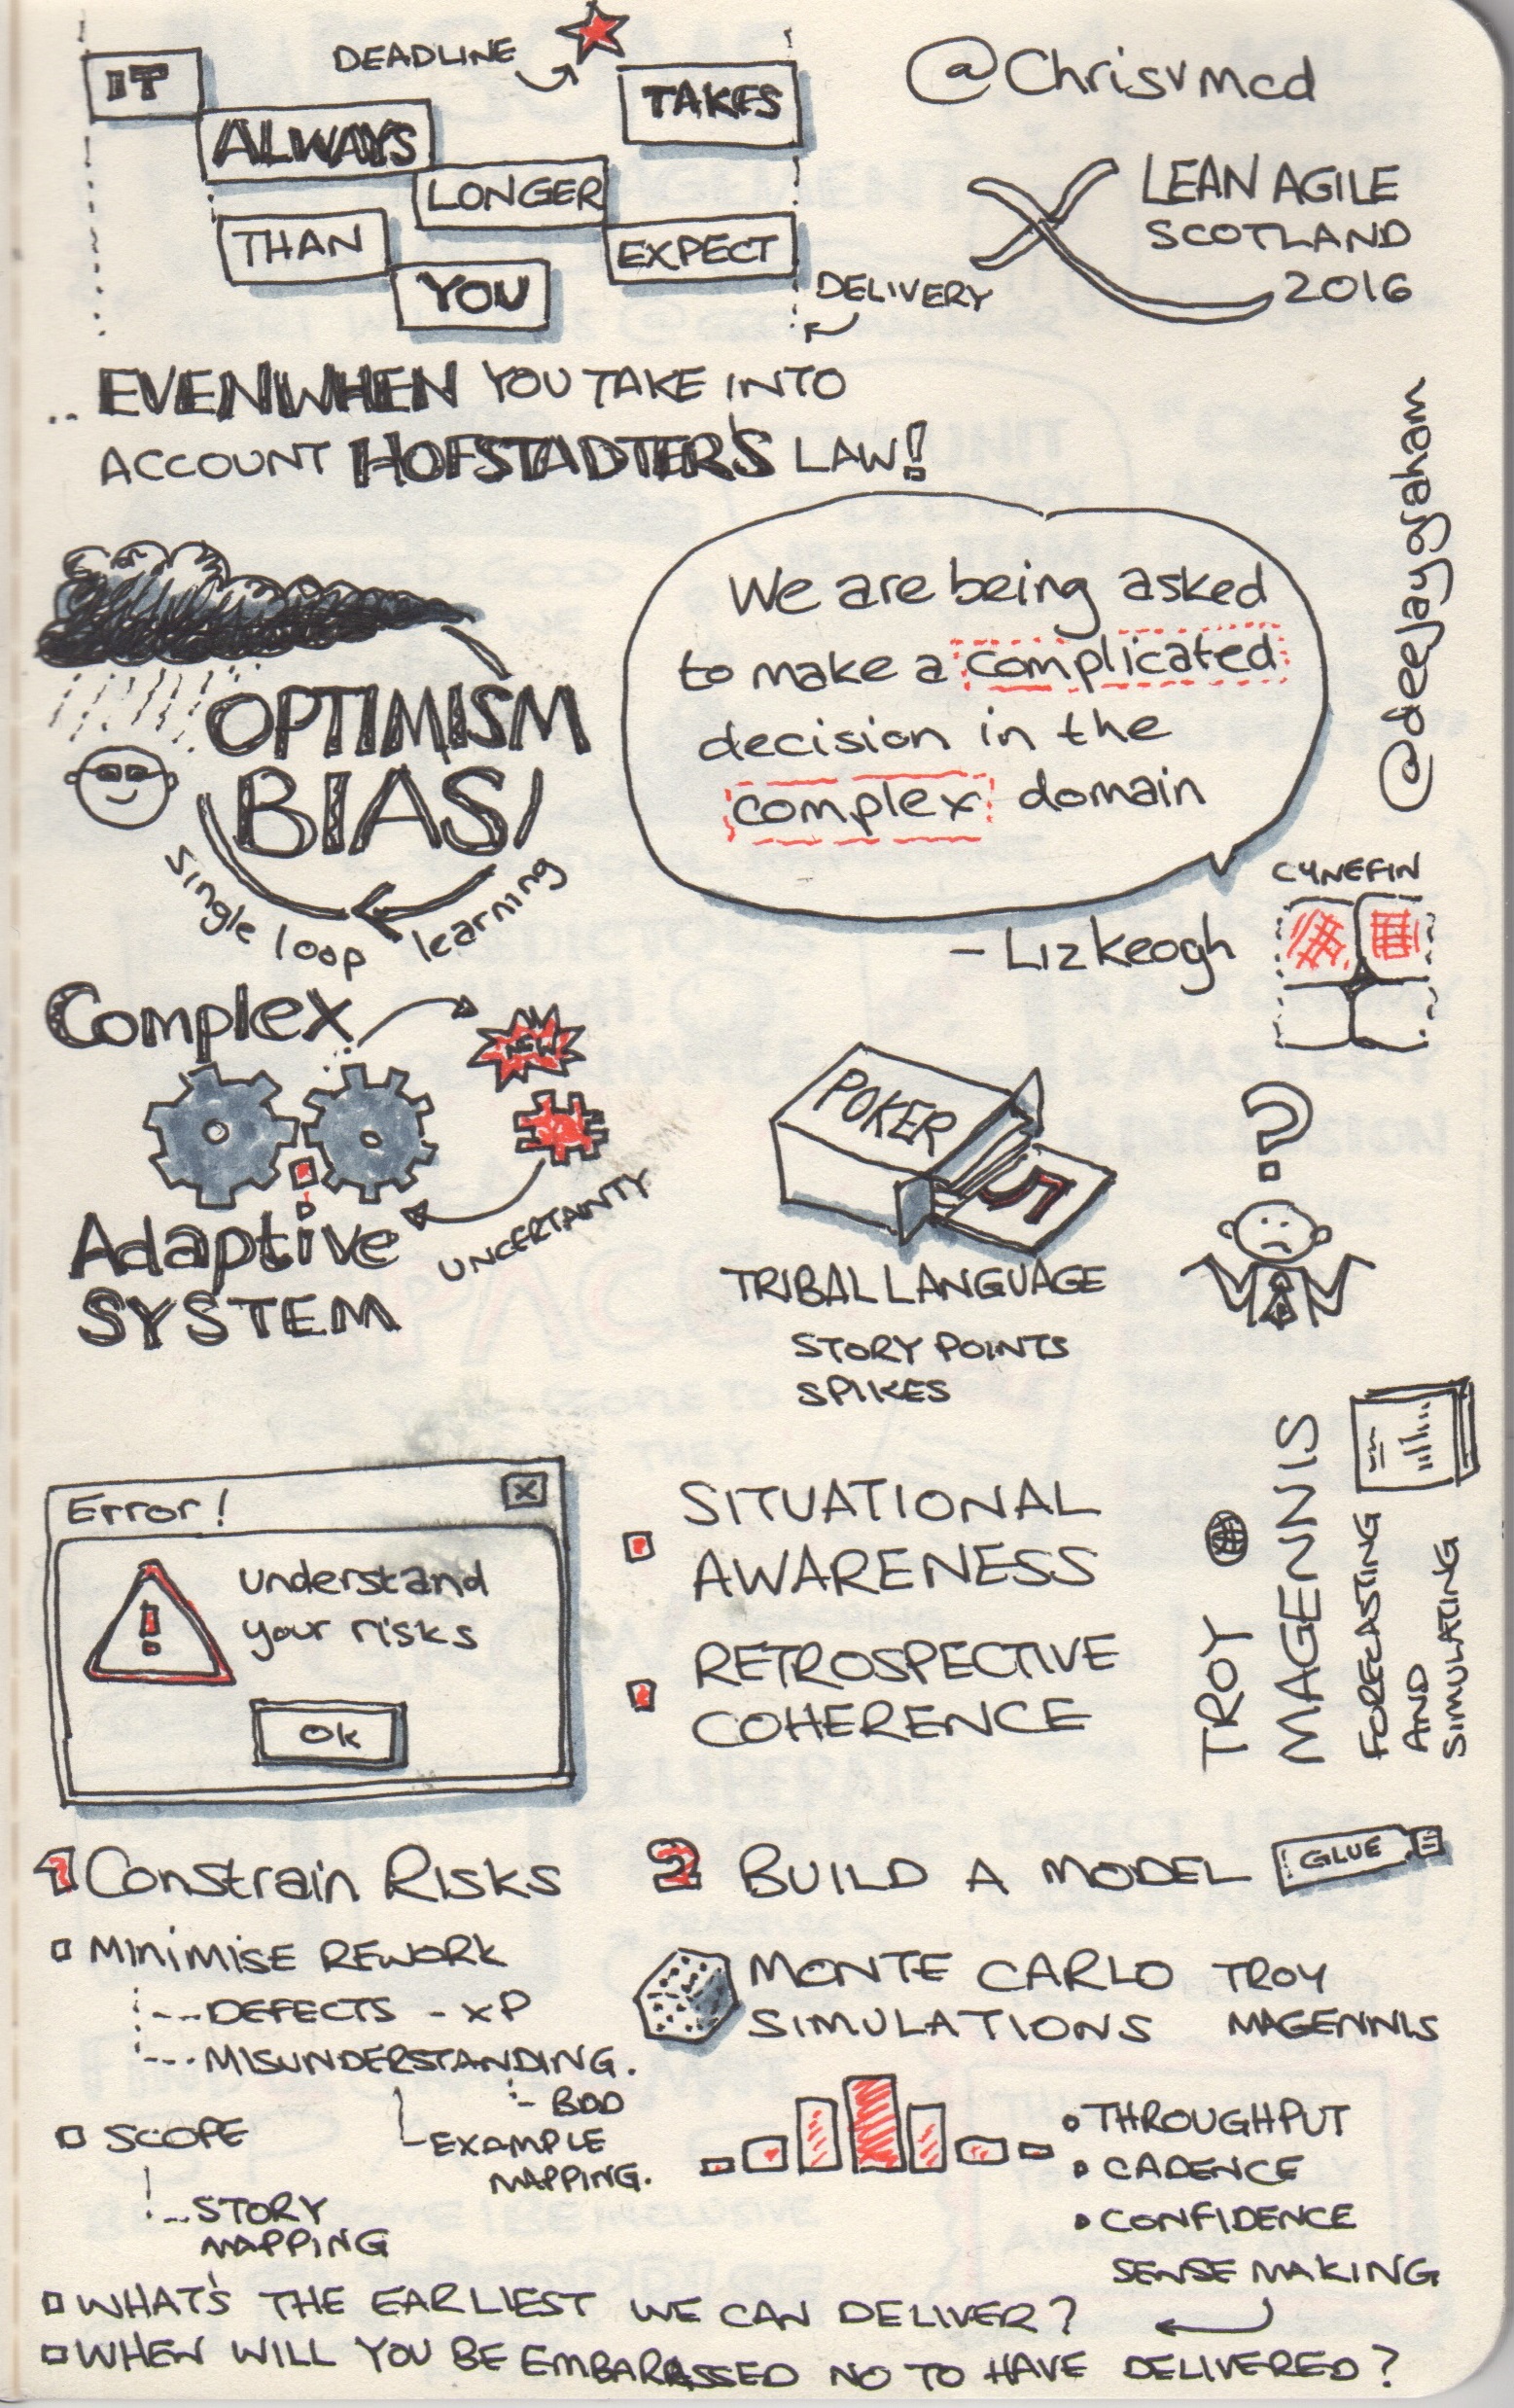 IT
ALWAYS
DEADLINE
TAKES
LONGER
THAN
YOU
EXPECT
DELIVERY
@Chrisvmcd
LEAN AGILE
SCOTLAND
2016
.. EVEN WHEN YOU TAKE INTO
ACCOUNT HOFSTADTER'S LAW!
@deejaygraham
OPTIMISM
BIAS
single loop learning
We are being asked
to make a complicated
decision in the
complex domain
- Liz Keogh
CYNEFIN
Complex
NEW
Adaptive
SYSTEM
UNCERTAINTY
POKER
5
TRIBAL LANGUAGE
STORY POINTS
SPIKES
?
Error!
x
understand
your risks
!
Ok
SITUATIONAL
AWARENESS
RETROSPECTIVE
COHERENCE
TROY
MAGENNIS
FORECASTING
AND
SIMULATING
1 Constrain Risks
MINIMISE REWORK
DEFECTS - XP
MISUNDERSTANDING.
- BDD
EXAMPLE
MAPPING.
SCOPE
STORY
MAPPING
2 BUILD A MODEL
GLUE
MONTE CARLO
SIMULATIONS
TROY
MAGENNIS
• THROUGHPUT
• CADENCE
• CONFIDENCE
SENSE MAKING
WHAT'S THE EARLIEST WE CAN DELIVER?
WHEN WILL YOU BE EMBARASSED NO TO HAVE DELIVERED?